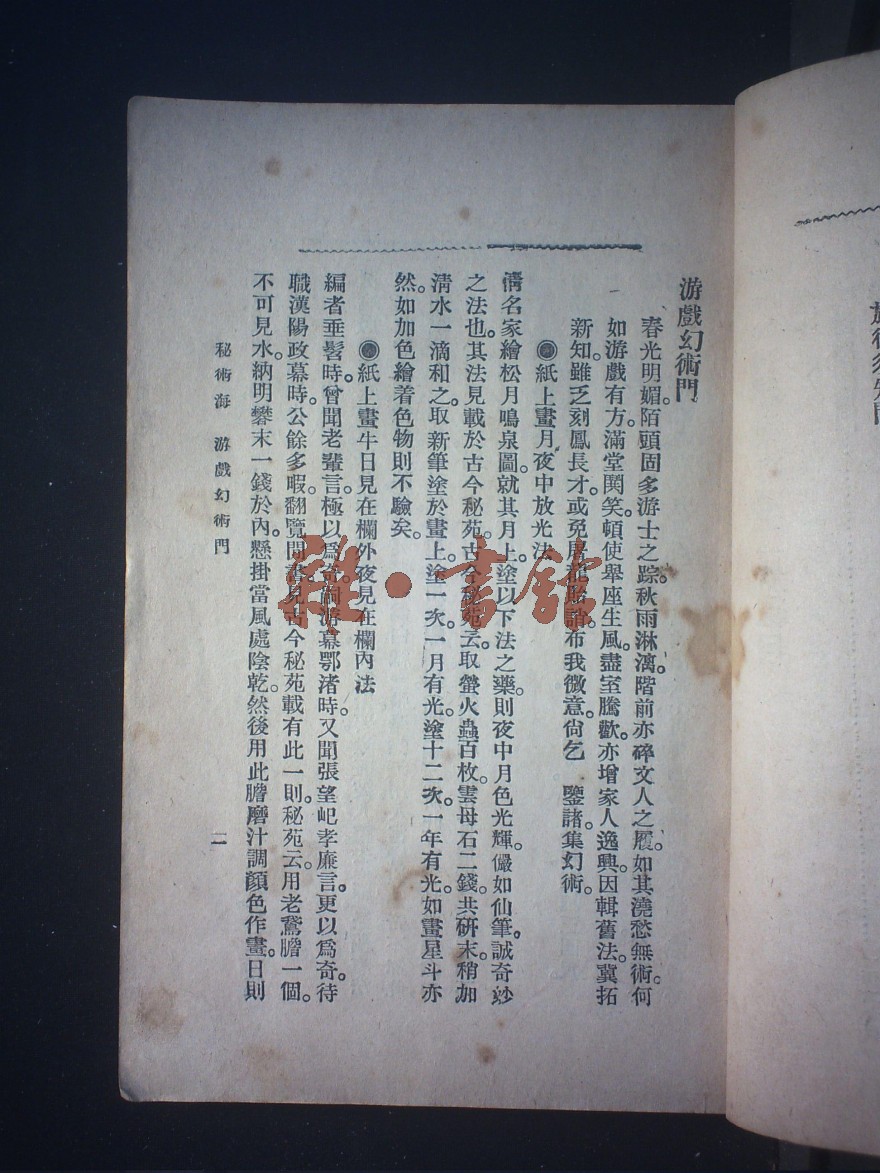 游戲幻術門
春光明媚。陌頭固多游士之踪。秋雨淋漓。階前亦碎文人之屐。如其澆愁無術。何
如游戲有方。滿堂鬨笑。頓使舉座生風。盡室騰歡。亦增家人逸興。因輯舊法。冀拓
新知。雖乏刻鳳長才。或免屠 布我微意。尙乞 鑒諸。集幻術。
◉紙上畫月夜中放光法
倩名家繪松月鳴泉圖。就其月上塗以下法之藥。則夜中月色光輝。儼如仙筆。誠奇妙
之法也。其法見載於古今秘苑。古今秘苑云。取螢火蟲百枚。雲母石二錢。共研末。稍加
淸水一滴和之。取新筆塗於畫上。塗一次。一月有光。塗十二次。一年有光。如畫星斗亦
然。如加色繪着色物則不驗矣。
◉紙上畫牛日見在欄外夜見在欄內法
編者垂髫時。曾聞老輩言。極以爲奇。 游幕鄂渚時。又聞張望屺孝廉言。更以爲奇。待
職漢陽政幕時。公餘多暇。翻覽閒書。見古今秘苑載有此一則。秘苑云。用老鵞膽一個。
不可見水。納明礬末一錢於內。懸掛當風處陰乾。然後用此膽磨汁調顏色作畫。日則
秘術海 游戲幻術門
二
雜·書館